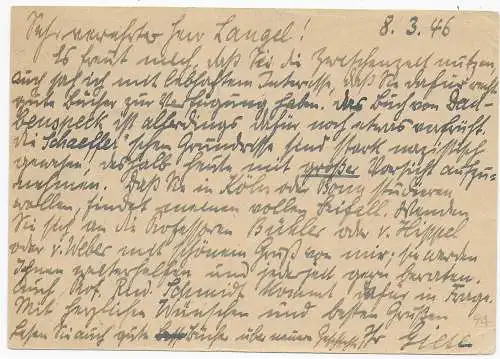 Sehr verehrter Herr Langel! 8.3.46
Es freut mich, daß Sie die Zwischenzeit nutzen,
auch sah ich mit lebhaftem Interesse, daß Sie dafür recht
gute Bücher zur Verfügung haben. Das Buch von
ist allerdings dafür noch etwas verfrüht.
Die Schaeffer'schen Grundrisse sind stark nazistisch
gewesen, deshalb heute mit großer Vorsicht aufzu-
nehmen. Daß Sie in Köln oder Bonn studieren
wollen findet meinen vollen Beifall. Wenden
Sie sich an die Professoren oder v. Hippel
oder v. Weber mit schönem Gruß von mir, sie werden
Ihnen weiterhelfen und jederzeit gern beraten.
Auch Prof. Rud. Schmidt kommt dafür in Frage.
Mit herzlichen Wünschen und besten Grüßen
Lesen Sie auch gute Bücher über neuere Geschichte! Ihr